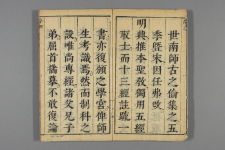 世南師古之倫集之五
季暨宋因任弗改
明典推本聖教獨用五經
取士而十三經註疏一
書亦復頒之學宮俾師
生考識焉然而制科之
設唯尚專經諸父兄子
弟顧首擣摹不敢復論